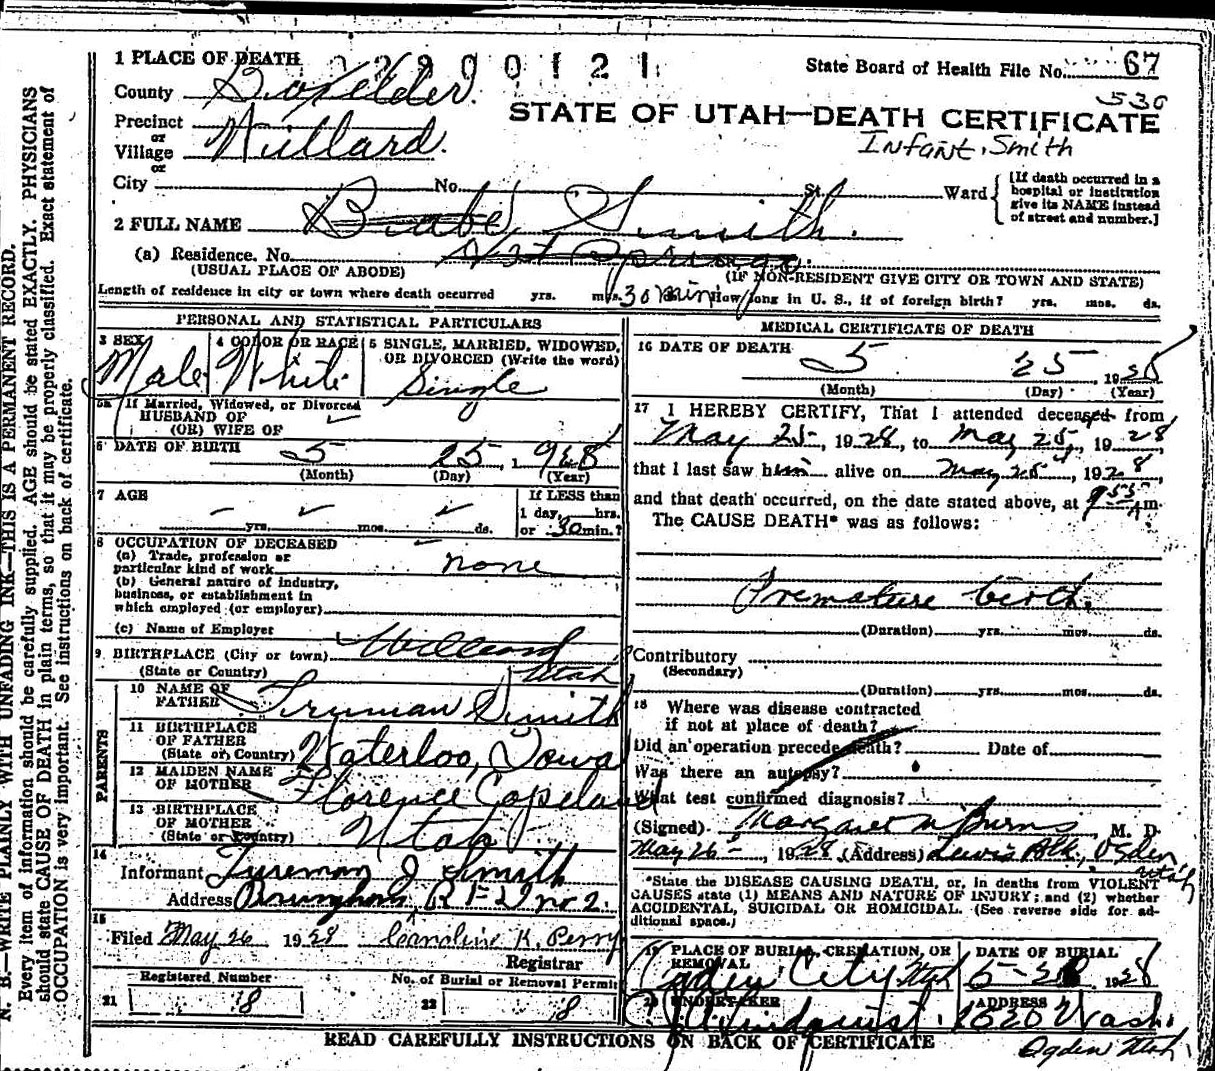 1 PLACE OF DEATH 2 9 0 0 1 2 1
State Board of Health File No. 67
County Boxelder
530
STATE OF UTAH—DEATH CERTIFICATE
Precinct or Village Willard.
Infant. Smith
City No. St. Ward
[If death occurred in a hospital or institution give its NAME instead of street and number.]
2 FULL NAME Babe Smith.
(a) Residence. No. Hot Springs.
(USUAL PLACE OF ABODE) (IF NON-RESIDENT GIVE CITY OR TOWN AND STATE)
Length of residence in city or town where death occurred yrs. mos. 30 min. How long in U. S., if of foreign birth? yrs. mos. ds.
PERSONAL AND STATISTICAL PARTICULARS
3 SEX Male
4 COLOR OR RACE White
5 SINGLE, MARRIED, WIDOWED, OR DIVORCED (Write the word) Single
5a If Married, Widowed, or Divorced
HUSBAND OF
(OR) WIFE OF
6 DATE OF BIRTH 5 25, 1928
(Month) (Day) (Year)
7 AGE yrs. mos. ds.
If LESS than 1 day, hrs. or 30 min.?
8 OCCUPATION OF DECEASED
(a) Trade, profession or particular kind of work none
(b) General nature of industry, business, or establishment in which employed (or employer)
(c) Name of Employer
9 BIRTHPLACE (City or town) Willard
(State or Country) Utah
PARENTS
10 NAME OF FATHER Truman Smith
11 BIRTHPLACE OF FATHER (State or Country) Waterloo, Iowa
12 MAIDEN NAME OF MOTHER Florence Copeland
13 BIRTHPLACE OF MOTHER (State or Country) Utah
14 Informant Tureman J Smith
Address Brungham R F D no 2.
15 Filed May 26 1928 Caroline K. Perry
Registrar
Registered Number No. of Burial or Removal Permit
21 8 22 8
MEDICAL CERTIFICATE OF DEATH
16 DATE OF DEATH 5 25, 1928
(Month) (Day) (Year)
17 I HEREBY CERTIFY, That I attended deceased from
May 25, 1928, to May 25, 1928
that I last saw him alive on May 25, 1928,
and that death occurred, on the date stated above, at 9 55 A m.
The CAUSE DEATH* was as follows:
Premature birth.
(Duration) yrs. mos. ds.
Contributory
(Secondary)
(Duration) yrs. mos. ds.
18 Where was disease contracted
if not at place of death?
Did an operation precede death? Date of
Was there an autopsy?
What test confirmed diagnosis?
(Signed) Margaret M Burns, M. D.
May 26, 1928 (Address) Lewis Blk, Ogden, Utah
*State the DISEASE CAUSING DEATH, or, in deaths from VIOLENT
CAUSES state (1) MEANS AND NATURE OF INJURY; and (2) whether
ACCIDENTAL, SUICIDAL OR HOMICIDAL. (See reverse side for ad-
ditional space.)
19 PLACE OF BURIAL, CREMATION, OR REMOVAL Ogden City Utah
DATE OF BURIAL 1928
20 UNDERTAKER Lindquist.
ADDRESS Wash. Ogden Utah
READ CAREFULLY INSTRUCTIONS ON BACK OF CERTIFICATE
N. B.—WRITE PLAINLY WITH UNFADING INK—THIS IS A PERMANENT RECORD.
Every item of information should be carefully supplied. AGE should be stated EXACTLY. PHYSICIANS
should state CAUSE OF DEATH in plain terms, so that it may be properly classified. Exact statement of
OCCUPATION is very important. See instructions on back of certificate.